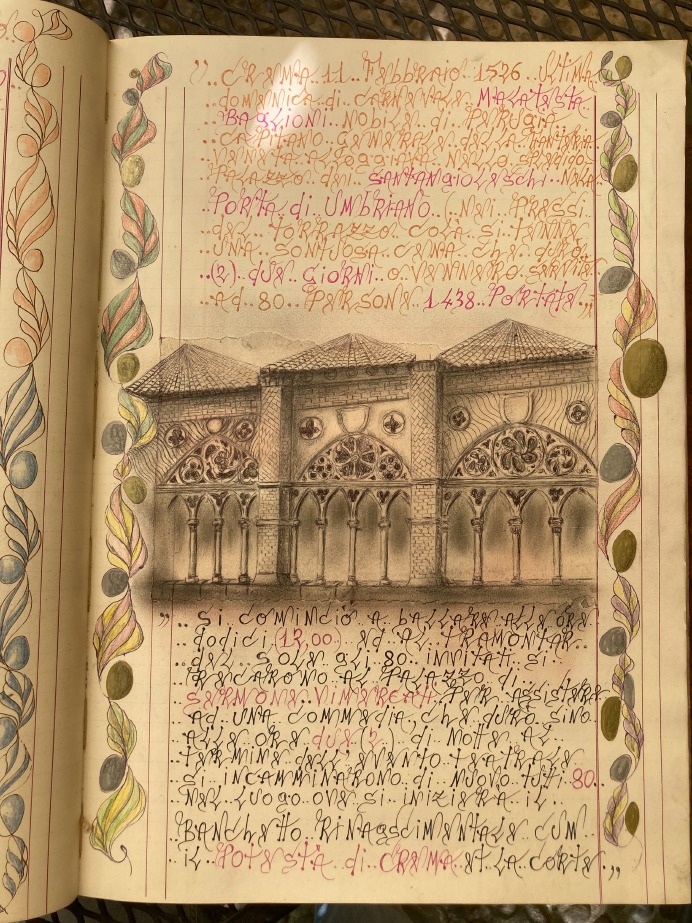 ,, .. CREMA .. 11 .. Febbraio .. 1526 .. Ultima
.. domenica .. di .. carnevale .. Malatesta
.. Baglioni .. Nobile .. di .. Perugia ..
.. Capitano .. Generale .. della ..
.. Veneta .. alloggiava .. nello ..
Palazzo .. dei .. Santangioleschi .. nela
.. Porta .. di .. Umbriano .. (.. nei .. pressi ..
del .. torrazzo .. colà .. si .. tenne
.. una .. sontuosa .. cena .. che .. durò ..
.. (2) .. due .. giorni .. e .. vennero .. servite
.. ad .. 80 .. persone .. 1438 .. portate ,,
,, .. Si .. cominciò .. a .. ballare .. alle .. ore
.. dodici .. (12,00) .. ed .. al .. tramontar ..
.. del .. sole .. gli .. 80 .. invitati .. si ..
recarono .. al .. Palazzo .. di ..
Sermone .. Vimercati .. per .. assistere
.. ad .. una .. commedia .. che .. durò .. sino ..
alle .. ore .. due .. (2) .. di .. notte .. al ..
termine .. dell'evento .. teatrale
.. si .. incamminarono .. di .. nuovo .. tutti .. 80 ..
nel .. luogo .. ove .. si .. inizierà .. il ..
Banchetto .. Rinascimentale .. cum ..
.. il .. Potestà .. di .. Crema .. et .. la .. corte ,,